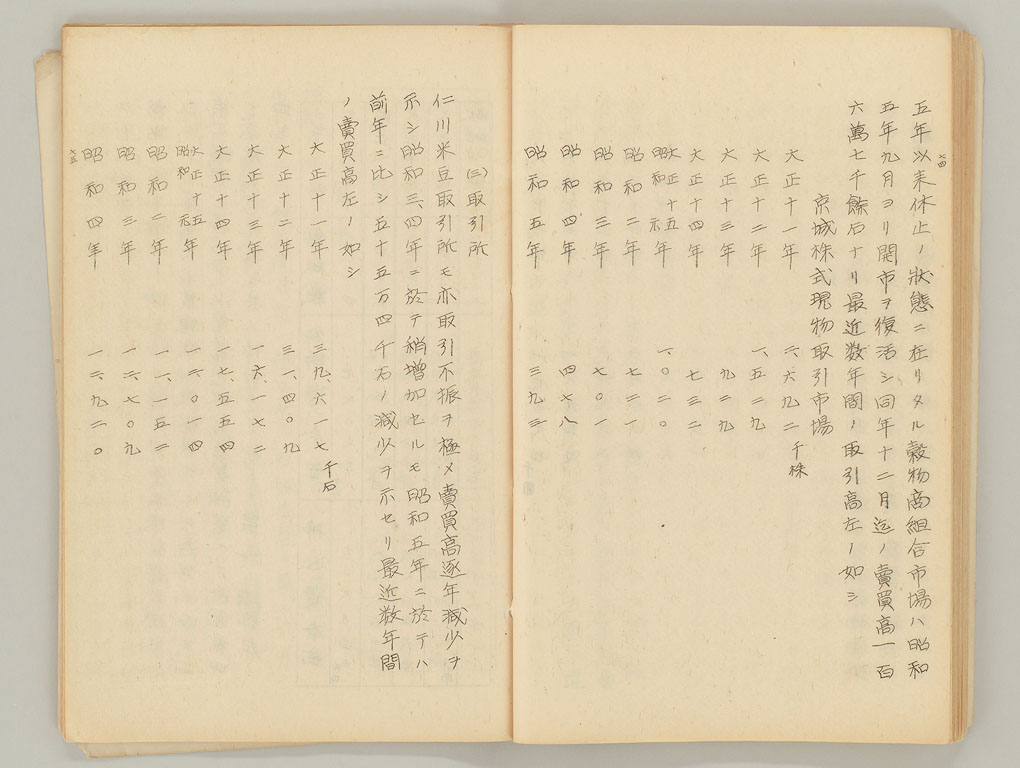 七四
五年以来休止ノ狀態ニ在リタル穀物商組合市場ハ昭和
五年九月ヨリ開市ヲ復活シ同年十二月迄ノ賣買高一百
六萬七千餘石ナリ最近数年間ノ取引高左ノ如シ
京城株式現物取引市場
大正十一年 二、六九二千株
大正十二年 一、五二九
大正十三年 九二九
大正十四年 七三二
大正十五昭和元年 一、〇二〇
昭和二年 七二一
昭和三年 七〇一
昭和四年 四七八
昭和五年 三九三
(三)取引所
仁川米豆取引所モ亦取引不振ヲ極メ賣買高逐年減少ヲ
示シ昭和三、四年ニ於テ稍增加セルモ昭和五年ニ於テハ
前年ニ比シ五十五万四千石ノ減少ヲ示セリ最近数年間
ノ賣買高左ノ如シ
大正十一年 三九、六一七千石
大正十二年 三一、四〇九
大正十三年 一六、一七二
大正十四年 一七、五五四
大正十五昭和元年 一二、〇一四
昭和二年 一一、一五二
昭和三年 一二、七〇九
昭和四年 一二、九二〇
七五